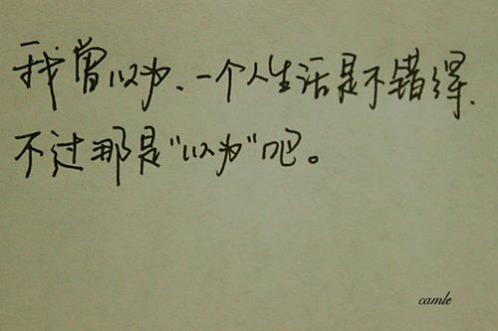 我曾以为、一个人生活是不错得.
不过那是“以为”吧。
camle